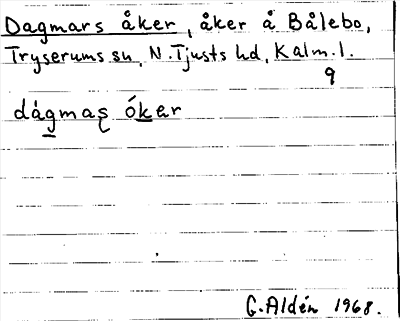 Dagmars åker, åker å Bålebo,
Tryserums sn, N. Tjusts hd, Kalm. l.
9
dágmaʂ ókar
G. Aldén 1968.